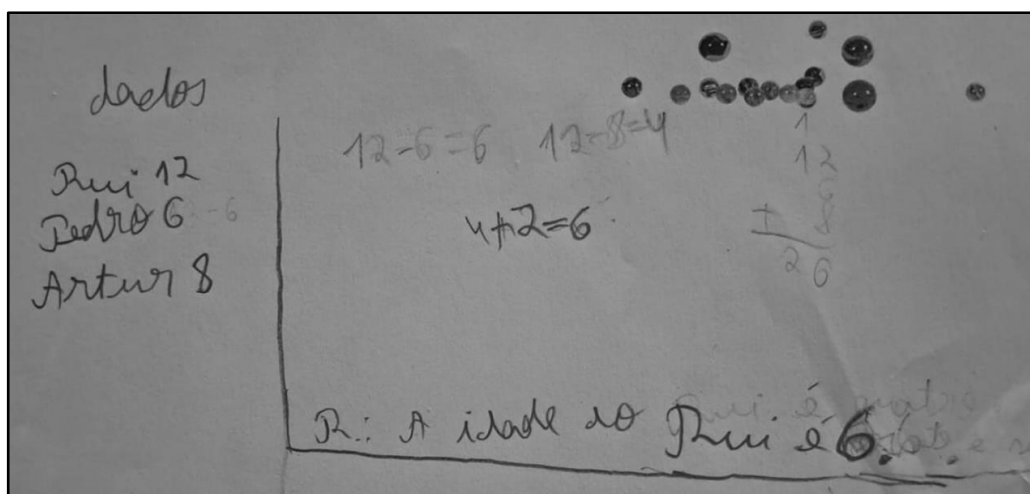 dados
Rui 12
Pedro 6 - 6
Artur 8
12-6=6 12-8=4
4+2=6
1
12
6
+ 8
26
R.: A idade do Rui é 6.